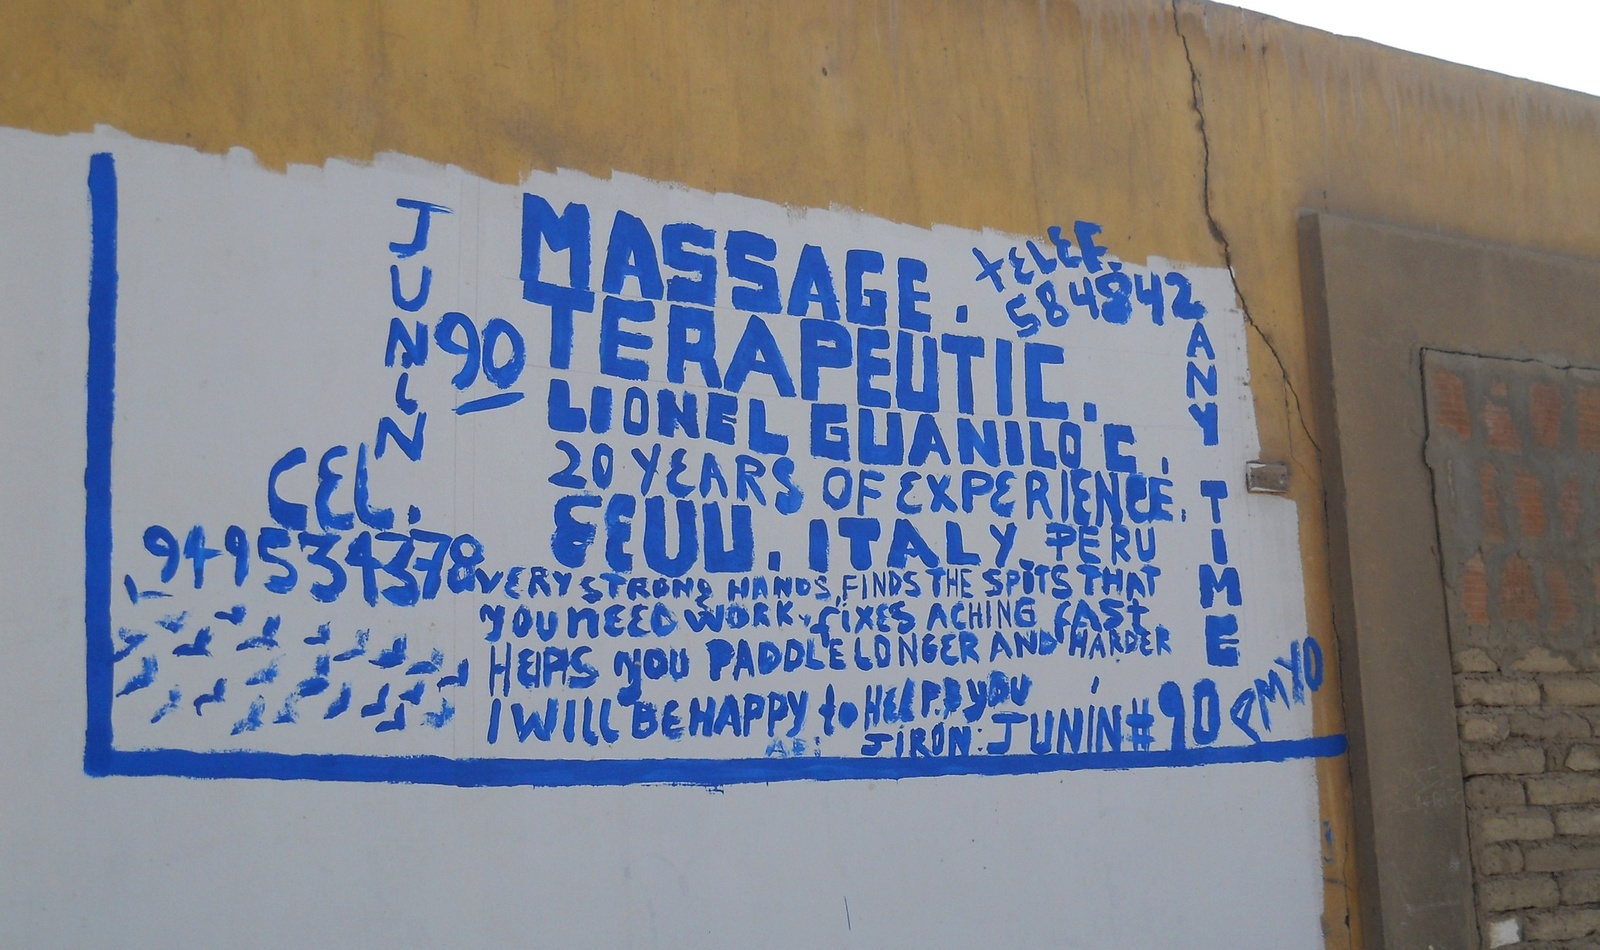 JUNIN
90
CEL.
949534378
MASSAGE.
TELEF.
584842
TERAPEUTIC.
LIONEL GUANILO C.
20 YEARS OF EXPERIENCE.
EEUU. ITALY PERU
VERY STRONG HANDS, FINDS THE SPITS THAT
YOU NEED WORK, fixES ACHING FAST
HElPS YOU PADDLE LONGER AND HARDER
I WILL BE HAPPY to HELP YOU
JIRON: JUNÍN #90
ANY TIME